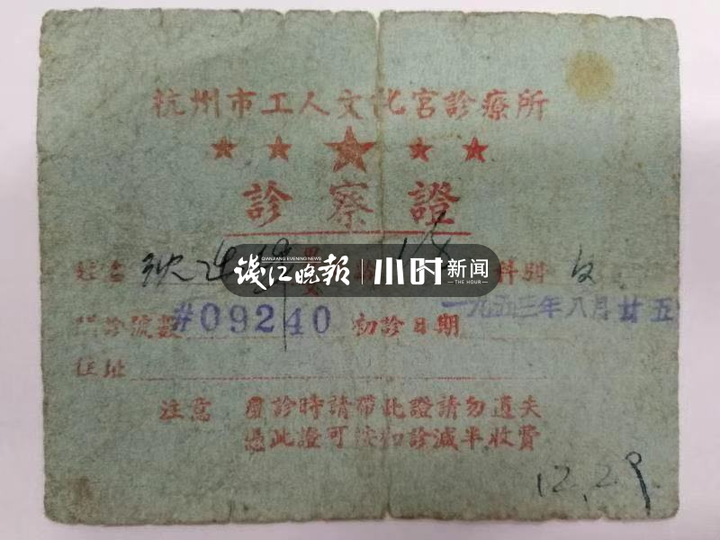 杭州市工人文化宮診療所
診察證
姓名 科別
門診號數 #09240 初診日期 一九五三年八月廿五
QIANJIANG EVENING NEWS
钱江晚报 小时新闻
THE HOUR
住址
注意 覆診時請帶此證請勿遺失
憑此證可按扣診減半收費
12.29